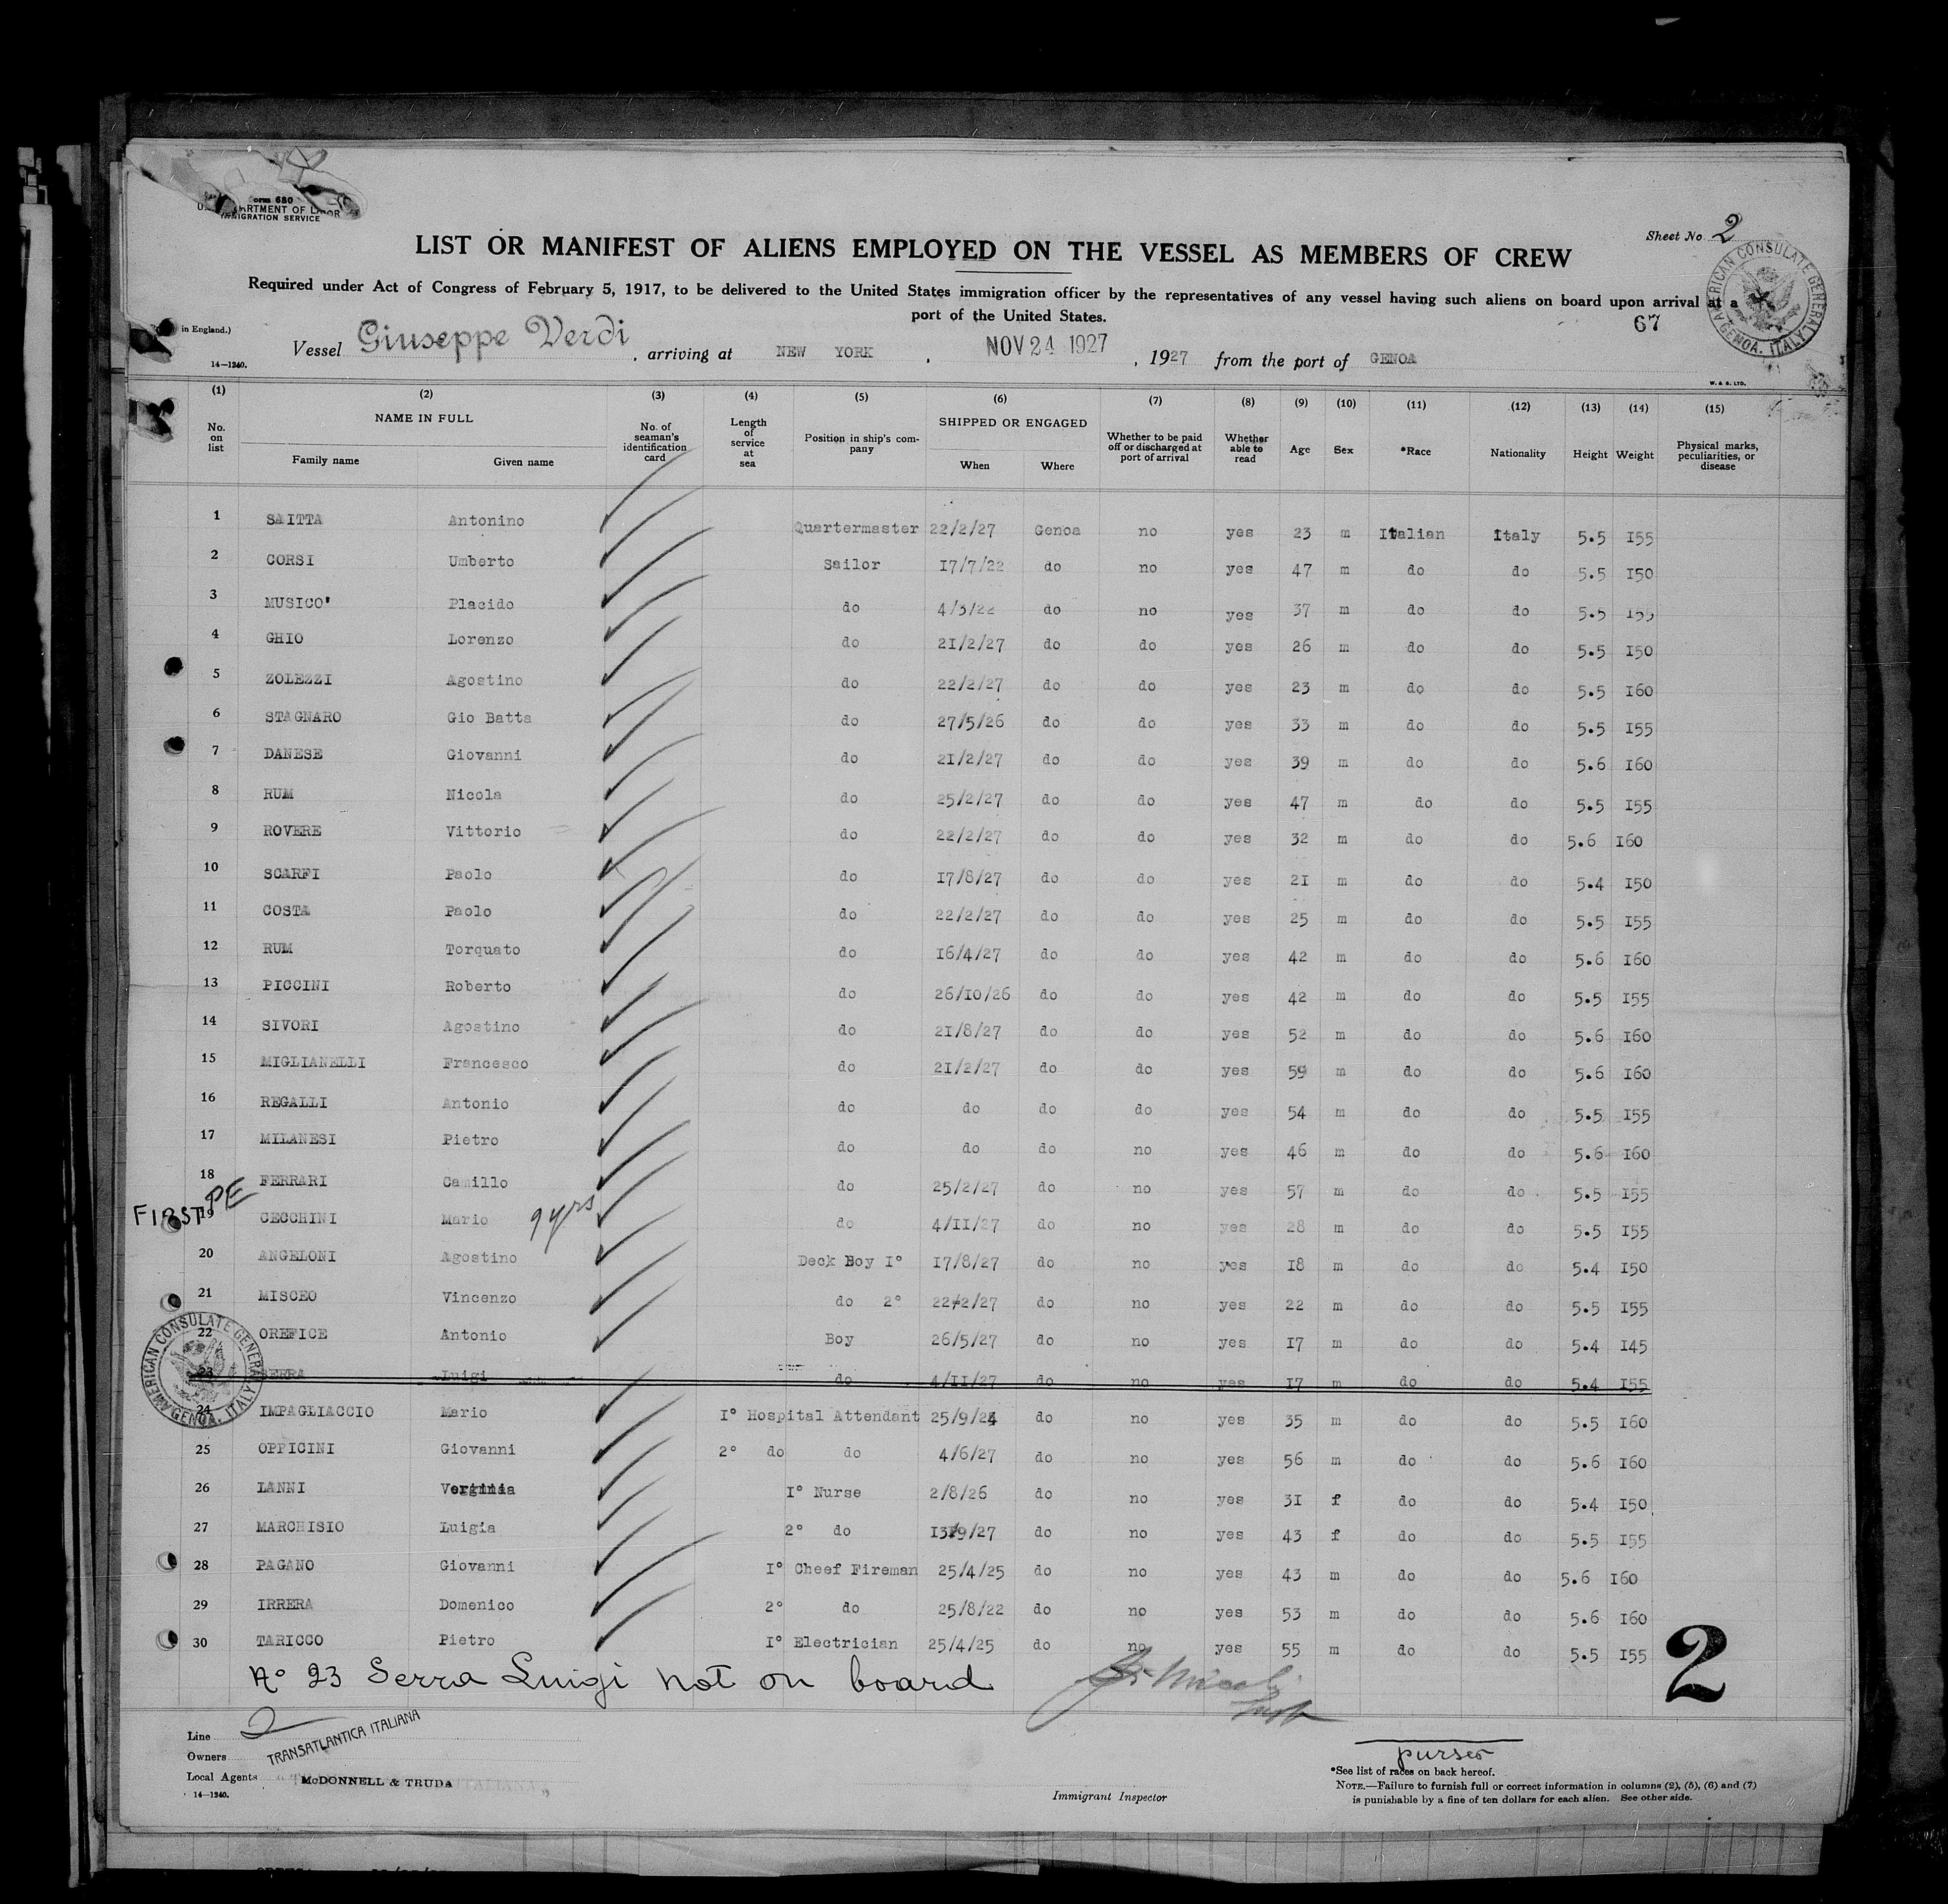 Form 680
U.S. DEPARTMENT OF LABOR
IMMIGRATION SERVICE
Sheet No 2
LIST OR MANIFEST OF ALIENS EMPLOYED ON THE VESSEL AS MEMBERS OF CREW
Required under Act of Congress of February 5, 1917, to be delivered to the United States immigration officer by the representatives of any vessel having such aliens on board upon arrival at a
port of the United States.
67
AMERICAN CONSULATE GENERAL GENOA, ITALY
in England.)
Vessel Giuseppe Verdi, arriving at NEW YORK, NOV 24 1927, 1927 from the port of GENOA
14—1240.
W. & S. LTD.
(1) (2) (3) (4) (5) (6) (7) (8) (9) (10) (11) (12) (13) (14) (15)
No. on list NAME IN FULL Family name Given name No. of seaman's identification card Length of service at sea Position in ship's company SHIPPED OR ENGAGED When Where Whether to be paid off or discharged at port of arrival Whether able to read Age Sex *Race Nationality Height Weight Physical marks, peculiarities, or disease
1 SAITTA Antonino Quartermaster 22/2/27 Genoa no yes 23 m Italian Italy 5.5 155
2 CORSI Umberto Sailor 17/7/22 do no yes 47 m do do 5.5 150
3 MUSICO' Placido do 4/3/22 do no yes 37 m do do 5.5 155
4 GHIO Lorenzo do 21/2/27 do do yes 26 m do do 5.5 150
5 ZOLEZZI Agostino do 22/2/27 do do yes 23 m do do 5.5 160
6 STAGNARO Gio Batta do 27/5/26 do do yes 33 m do do 5.5 155
7 DANESE Giovanni do 21/2/27 do do yes 39 m do do 5.6 160
8 RUM Nicola do 25/2/27 do do yes 47 m do do 5.5 155
9 ROVERE Vittorio do 22/2/27 do do yes 32 m do do 5.6 160
10 SCARFI Paolo do 17/8/27 do do yes 21 m do do 5.4 150
11 COSTA Paolo do 22/2/27 do do yes 25 m do do 5.5 155
12 RUM Torquato do 16/4/27 do do yes 42 m do do 5.6 160
13 PICCINI Roberto do 26/10/26 do do yes 42 m do do 5.5 155
14 SIVORI Agostino do 21/8/27 do do yes 52 m do do 5.6 160
15 MIGLIANELLI Francesco do 21/2/27 do do yes 59 m do do 5.6 160
16 REGALLI Antonio do do do do yes 54 m do do 5.5 155
17 MILANESI Pietro do do do no yes 46 m do do 5.6 160
18 FERRARI Camillo do 25/2/27 do no yes 57 m do do 5.5 155
FIRST PE
19 CECCHINI Mario 9 yrs do 4/11/27 do no yes 28 m do do 5.5 155
20 ANGELONI Agostino Deck Boy 1° 17/8/27 do no yes 18 m do do 5.4 150
21 MISCEO Vincenzo do 2° 22/2/27 do no yes 22 m do do 5.5 155
22 OREFICE Antonio Boy 26/5/27 do no yes 17 m do do 5.4 145
23 SERRA Luigi do 4/11/27 do no yes 17 m do do 5.4 155
AMERICAN CONSULATE GENERAL GENOA, ITALY
24 IMPAGLIACCIO Mario 1° Hospital Attendant 25/9/24 do no yes 35 m do do 5.5 160
25 OPPICINI Giovanni 2° do do 4/6/27 do no yes 56 m do do 5.6 160
26 IANNI Verginia 1° Nurse 2/8/26 do no yes 31 f do do 5.4 150
27 MARCHISIO Luigia 2° do 13/9/27 do no yes 43 f do do 5.5 155
28 PAGANO Giovanni 1° Cheef Fireman 25/4/25 do no yes 43 m do do 5.6 160
29 IRRERA Domenico 2° do 25/8/22 do no yes 53 m do do 5.6 160
30 TARICCO Pietro 1° Electrician 25/4/25 do no yes 55 m do do 5.5 155
N° 23 Serra Luigi not on board
2
Line
Owners TRANSATLANTICA ITALIANA
Local Agents McDONNELL & TRUDA
14—1240.
Immigrant Inspector
purser
*See list of races on back hereof.
NOTE.—Failure to furnish full or correct information in columns (2), (5), (6) and (7)
is punishable by a fine of ten dollars for each alien. See other side.